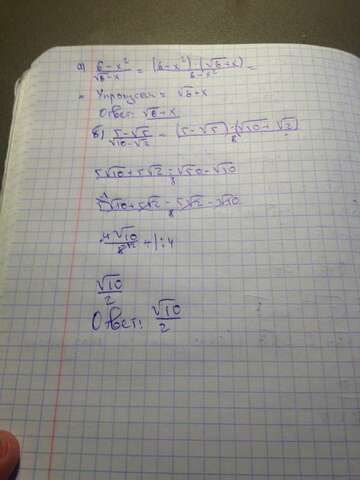 а) 6-x²/√6-x = (6-x²)·(√6+x)/6-x² =
= Упрощаем = √6+x
Ответ: √6+x
б) 5-√5/√10-√2 = (5-√5)·(√10+√2)/8
5√10+5√2-√50-√10/8
5√10+5√2-5√2-√10/8
4√10/8 :4
√10/2
Ответ: √10/2